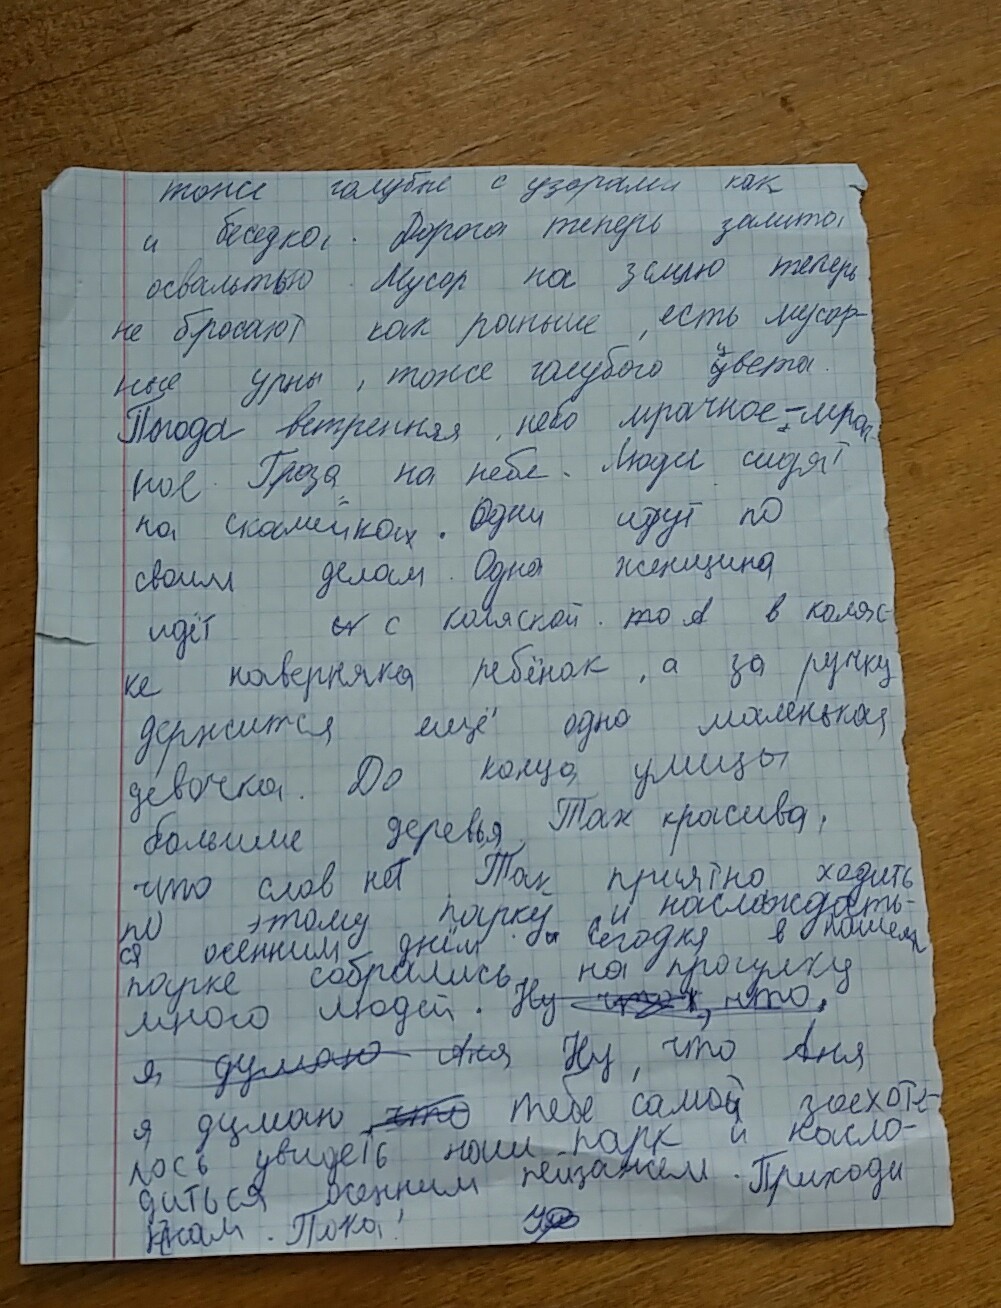 тоже голубые с узорами как
и беседка. Дорога теперь залита
освальтью. Мусор на землю теперь
не бросают как раньше, есть мусор-
ные урны, тоже голубого цвета.
Погода ветренняя, небо мрачное-мрач-
ное. Гроза на небе. Люди сидят
на скамейках. Одни идут по
своим делам. Одна женщина
идёт с коляской. А в коляс-
ке наверняка ребёнок, а за ручку
держится ещё одна маленькая
девочка. До конца улицы
большие деревья. Так красива,
что слов нет. Так приятно ходить
по этому парку и наслаждать-
ся осенним днём. Сегодня в нашем
парке собрались на прогулку
много людей. Ну что,
я думаю Аня Ну, что Аня
я думаю что тебе самой захоте-
лось увидеть наш парк и насла-
диться осенним пейзажем. Приходи
к нам. Пока!